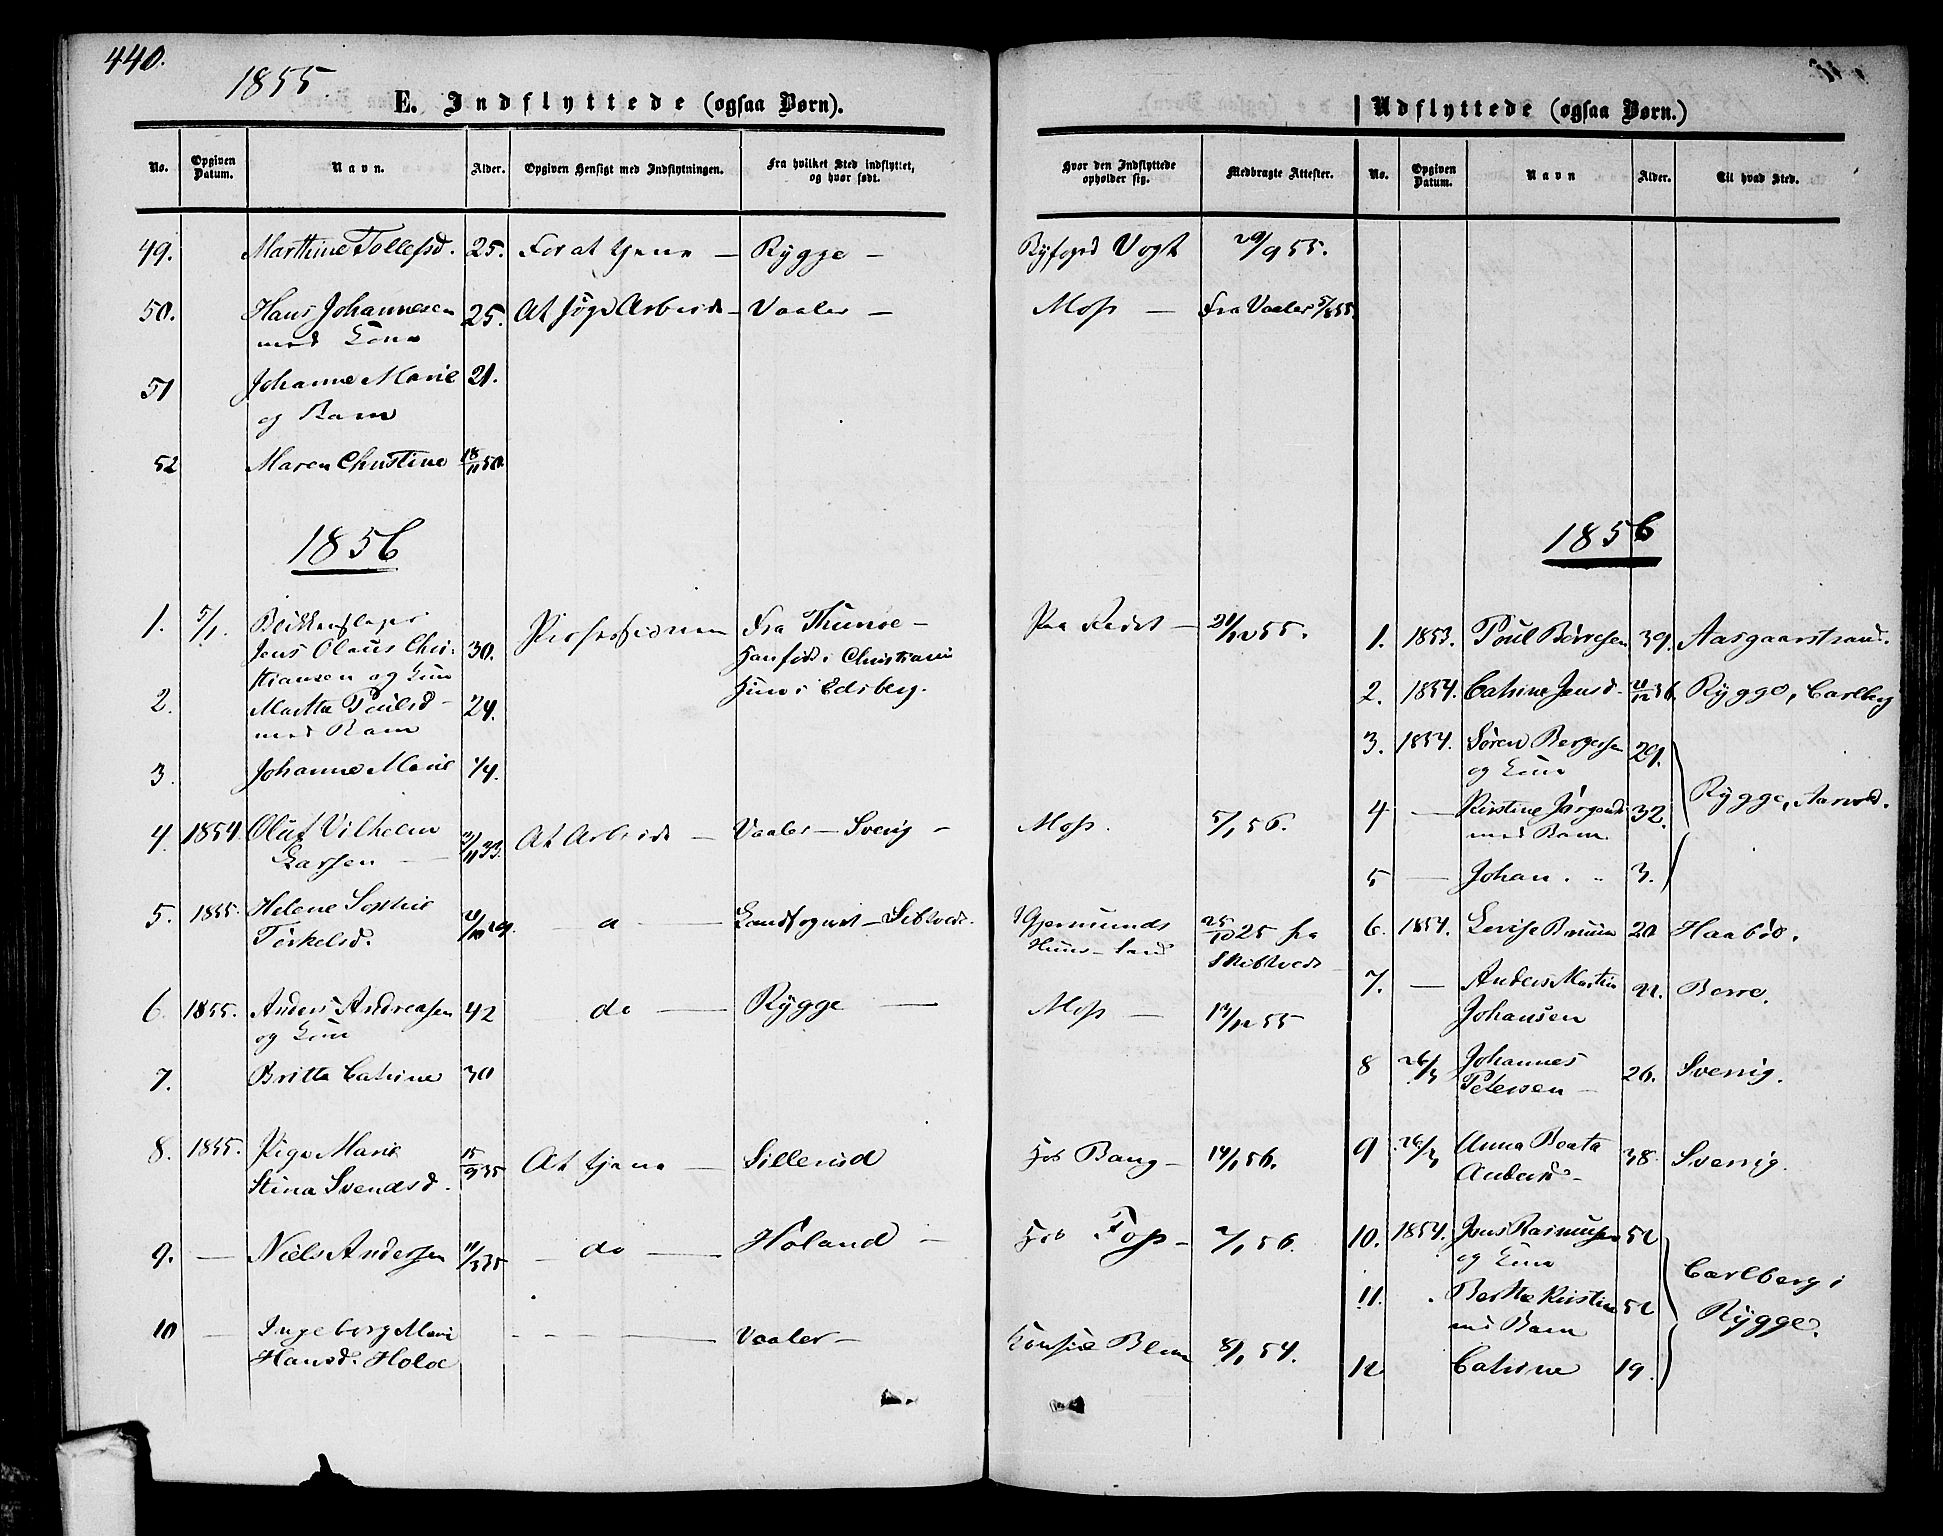 440.
1855
E. Indflyttede (ogsaa Børn).
No.
Opgiven Datum.
Navn.
Alder.
Opgiven Hensigt med Indflytningen.
Fra hvilket Sted indflyttet, og hvor født.
Hvor den Indflyttede opholder sig.
Medbragte Attester.
49. Marthine Tollefsd. 25. For at tjene — Rygge — Byfoged Vogt 29/9 55.
50. Hans Johannesen 25. At søge Arbeide — Vaaler — Moss — Fra Vaaler 5/ 55.
med Kone
51 Johanne Marie 21.
og Barn
52 Maren Christine 18/11 50.
1856
1. 5/1. Blikkenslager
Jens Olaus Chri- 30. Professionen Fra Thunøe — 21/12 55.
stiansen og Kone Han født i Christiania
2. Martha Poulsd — 24. Hun i Edsberg.
med Barn
3. Johanne Marie 1/4.
4. 1854. Oluf Vilhelm At Arbeide — Vaaler — Sverig — Moss. 5/1 56.
Larsen — /11 33.
5. 1855. Helene Sophie Skibtvedt. Gjermunds 25/10 25 fra
Torkelsd. Skibtvedt
6. 1855. Anders Andreasen 42 — do — Rygge — Moss — 13/12 55
og Kone
7. Britta Catrine 30
8. 1855. Pige Marie 15/9 35 At tjene — Sillerud Hos Bang — 14/1 56.
Stina Svendsd.
9. — Niels Andersen 11/3 35 — do — Høland — Hos Foss — 7/1 56.
10 — Ingeborg Marie — Vaaler — 8/1 54.
Hansd. Holoe
Udflyttede (ogsaa Børn.)
No.
Opgiven Datum.
Navn
Alder.
Til hvad Sted.
1856
1. 1853. Poul Børresen 39. Aasgaarstrand.
2. 1854. Catrine Jensd. /12 36. Rygge, Carlberg
3. 1854. Søren Bergersen 29.
og Kone
4 — Kirstine Jørgensd 32. Rygge, Aarvold.
med Barn
5 — Johan. " 3.
6. 1854. Lovise Bruun 20 Haabøl.
7. — Anders Martin 21. Borre.
Johansen
8 26/3 Johannes
Petersen — 26. Sverrig.
9 26/3 Anna Beata 38. Sverrig.
10. 1854. Jens Rasmusen 52
og Kone
Carlberg i
11. Berthe Kirstine 52
med Barn
Rygge.
12 Catrine 19.